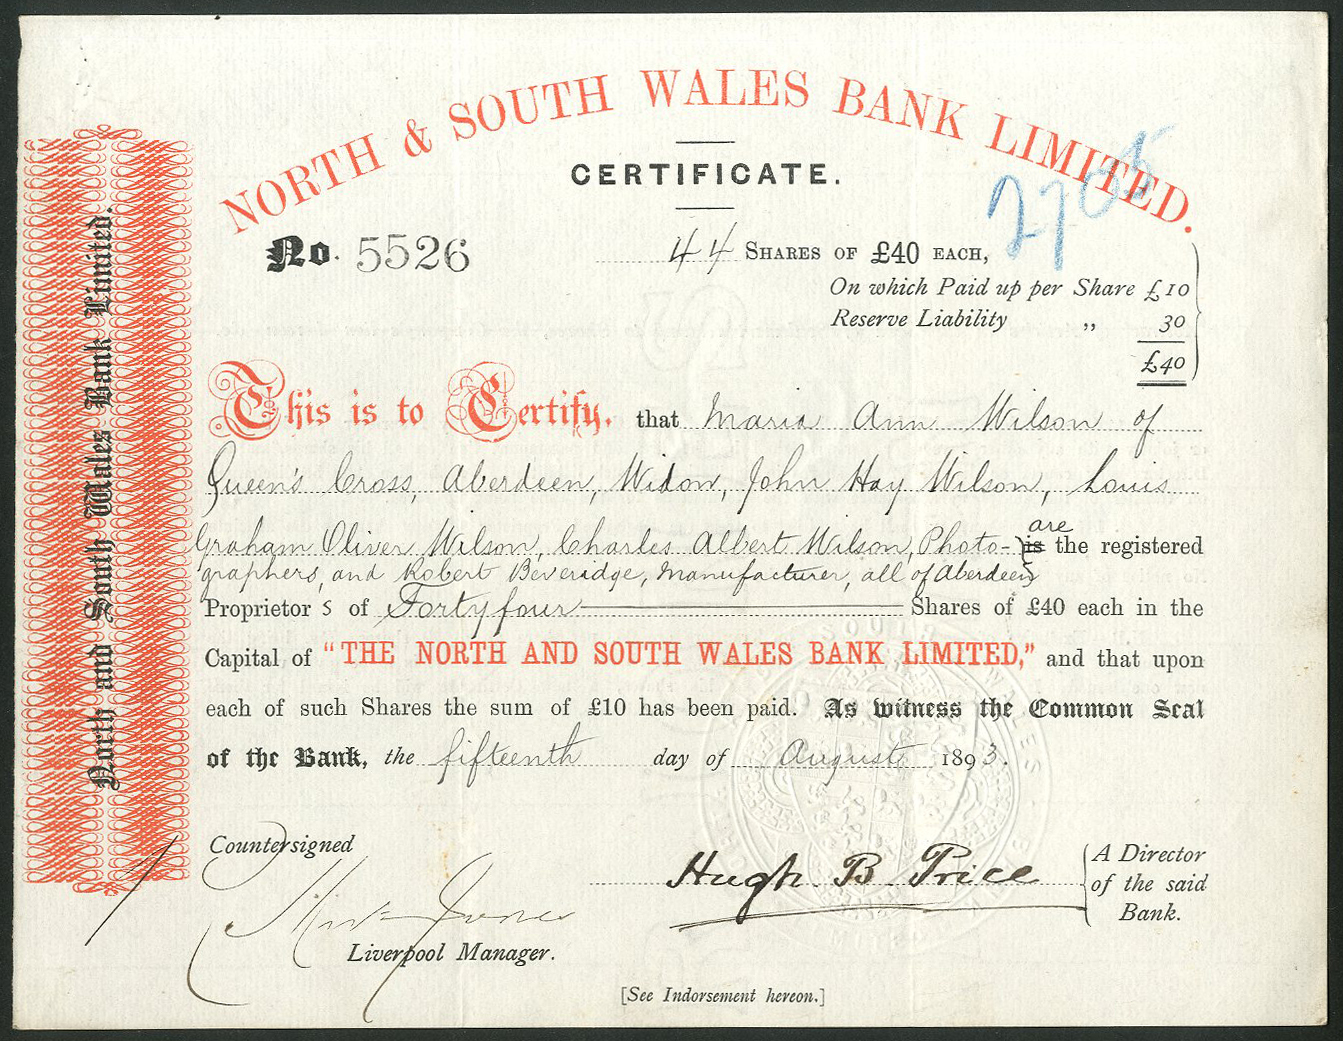 NORTH & SOUTH WALES BANK LIMITED.
CERTIFICATE.
2705
No. 5526
44 SHARES OF £40 EACH,
On which Paid up per Share £10
Reserve Liability „ 30
£40
This is to Certify, that Maria Ann Wilson of
Queen's Cross, Aberdeen, Widow, John Hay Wilson, Louis
Graham Oliver Wilson, Charles Albert Wilson, Photo- is are the registered
graphers, and Robert Beveridge, Manufacturer, all of Aberdeen
Proprietor s of Forty four Shares of £40 each in the
Capital of "THE NORTH AND SOUTH WALES BANK LIMITED," and that upon
each of such Shares the sum of £10 has been paid. As witness the Common Seal
of the Bank, the fifteenth day of August 1893.
Countersigned
Hugh B. Price
A Director
of the said
Bank.
Liverpool Manager.
[See Indorsement hereon.]
North and South Wales Bank Limited.